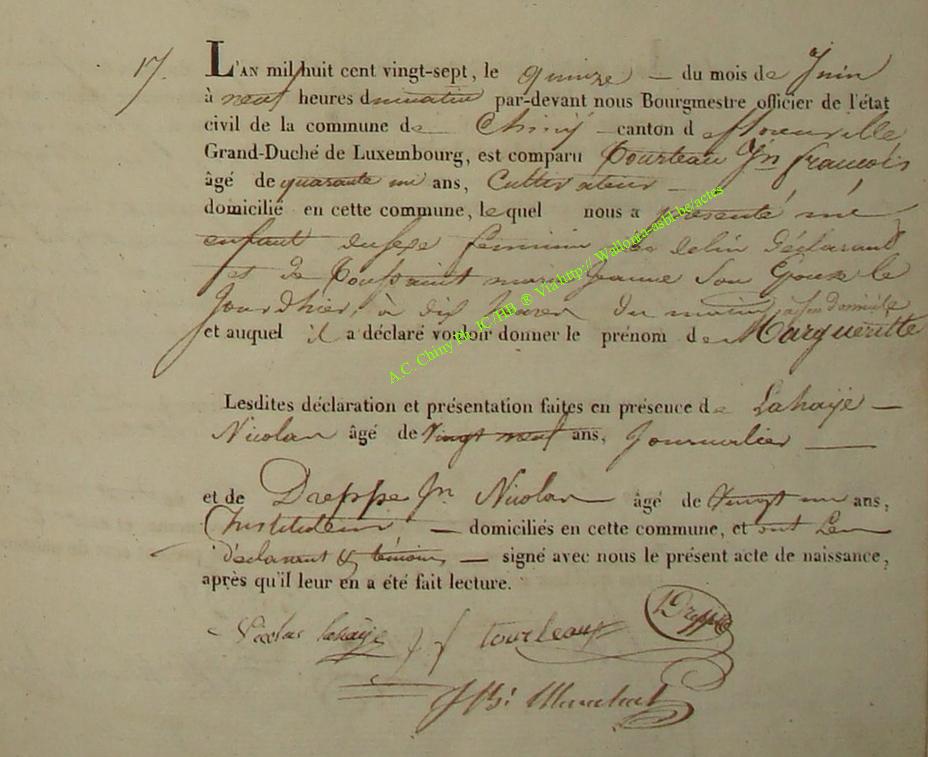 17.
L'AN mil huit cent vingt-sept, le quinze du mois de Juin
à neuf heures du matin par-devant nous Bourgmestre officier de l'état
civil de la commune de Chiny canton d e florenville
Grand-Duché de Luxembourg, est comparu Tourteau Jn francois
âgé de quarante un ans, Cultivateur
domicilié en cette commune, lequel nous a présenté un
enfant du sexe feminin né de lui Déclarant
et de Toussaint marie Jeanne Son Epouse le
Jourdhier, à dix heures du matin, a son domicile
et auquel il a déclaré vouloir donner le prénom de Margueritte
Lesdites déclaration et présentation faites en présence de Lahaÿe
Nicolas âgé de vingt neuf ans, Journalier
et de Dreppe Jn Nicolas âgé de vingt un ans,
Instituteur domiciliés en cette commune, et ont Les
déclarant & témoins signé avec nous le présent acte de naissance,
après qu'il leur en a été fait lecture.
Nicolas lahaÿe J f tourteaux Dreppe
A.C. Chiny Ph. JC/HB ® Via http:// Wallonia-asbl.be/actes